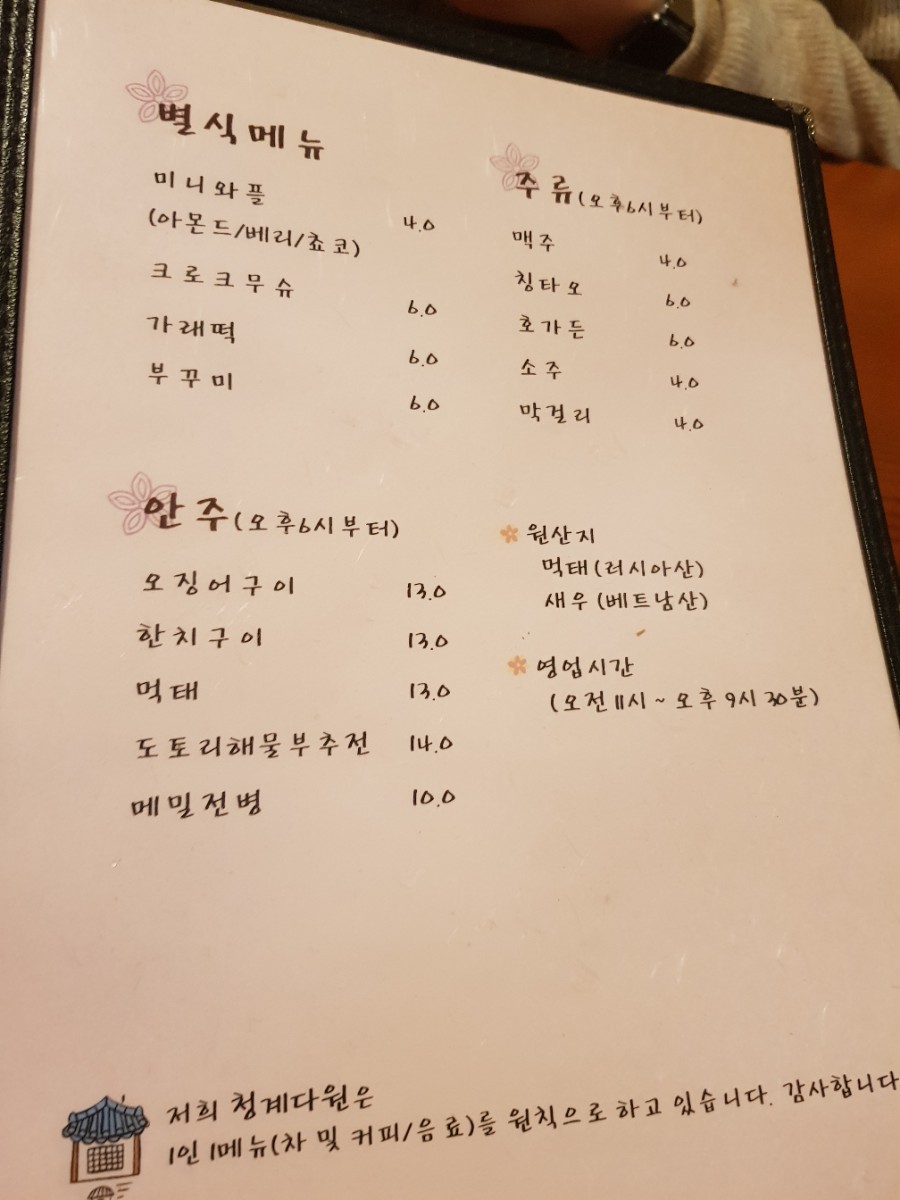 별식메뉴
미니와플
(아몬드/베리/쵸코) 4.0
크로크무슈 6.0
가래떡 6.0
부꾸미 6.0
주류(오후6시부터)
맥주 4.0
칭타오 6.0
호가든 6.0
소주 4.0
막걸리 4.0
안주(오후6시부터)
오징어구이 13.0
한치구이 13.0
먹태 13.0
도토리해물부추전 14.0
메밀전병 10.0
원산지
먹태(러시아산)
새우(베트남산)
영업시간
(오전11시~오후9시30분)
저희 청계다원은
1인 1메뉴(차 및 커피/음료)를 원칙으로 하고 있습니다. 감사합니다